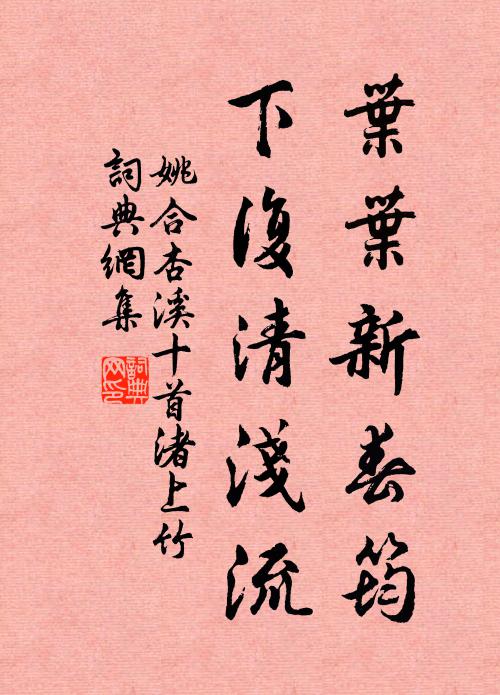 葉葉新春筠
下復清淺流
姚合杏溪十首渚上竹
詞典網集
詞典網印